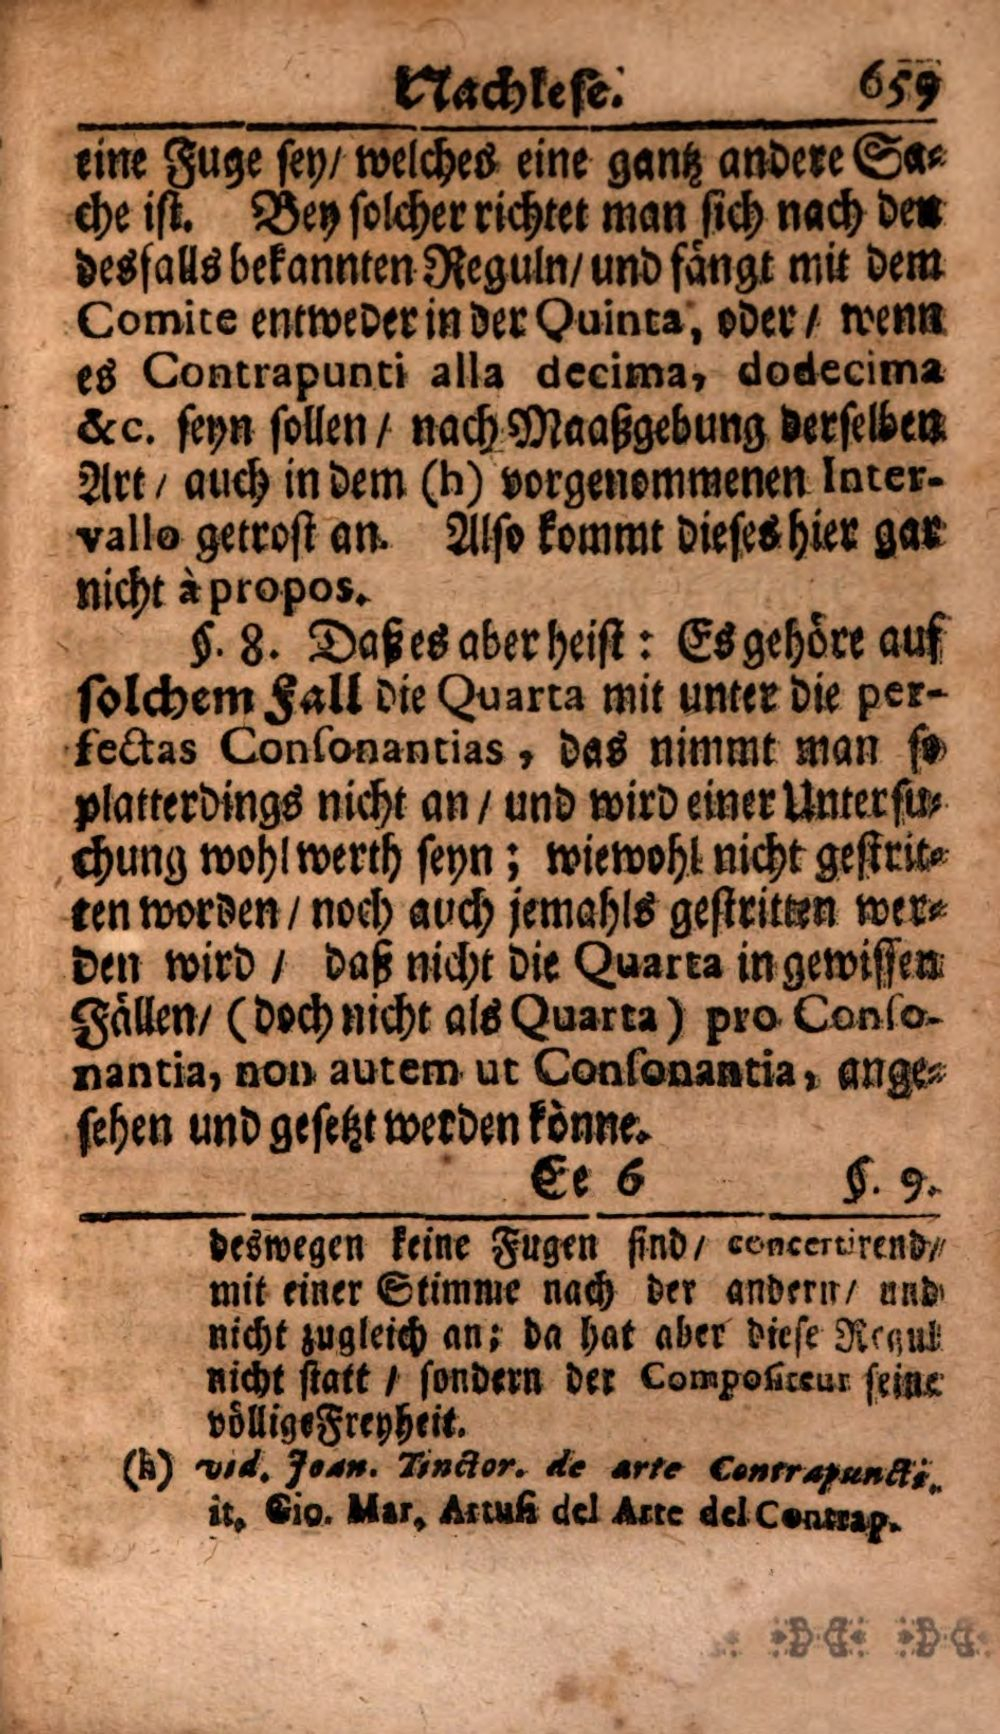 Nachlese. 659
eine Fuge sey/ welches eine gantz andere Sa-
che ist. Bey solcher richtet man sich nach den
desfalls bekannten Reguln/ und fängt mit dem
Comite entweder in der Quinta, oder/ wenn
es Contrapunti alla decima, dodecima
&c. seyn sollen/ nach Maaßgebung derselben
Art/ auch in dem (h) vorgenommenen Inter-
vallo getrost an. Also kommt dieses hier gar
nicht à propos.
§. 8. Daß es aber heist: Es gehöre auf
solchem Fall die Quarta mit unter die per-
fectas Consonantias, das nimmt man so
platterdings nicht an/ und wird einer Untersu-
chung wohl werth seyn; wiewohl nicht gestrit-
ten worden/ noch auch jemahls gestritten wer-
den wird/ daß nicht die Quarta in gewissen
Fällen/ (doch nicht als Quarta) pro Conso-
nantia, non autem ut Consonantia, ange-
sehen und gesetzt werden könne.
Ee 6 §. 9.
deswegen keine Fugen sind/ concertirend/
mit einer Stimme nach der andern/ und
nicht zugleich an; da hat aber diese Regul
nicht statt/ sondern der Compositeur seine
völlige Freyheit.
(h) vid. Joan. Tinctor. de arte Contrapuncti.
it. Gio. Mar. Artusi del Arte del Contrap.